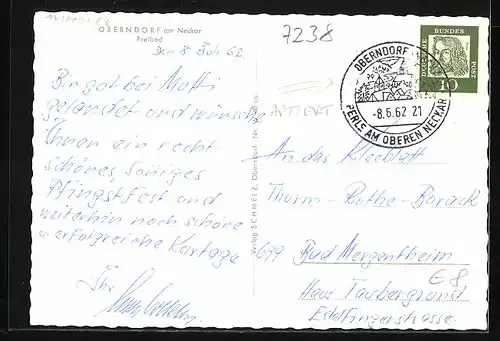 OBERNDORF am Neckar
Freibad
den 8 Juli 62
7238
Bin gut bei Mutti
gelandet und wünsche
Ihnen ein recht
schönes, sonniges
Pfingstfest und
weiterhin noch schöne
u. erfolgreiche Kurtage
Ihr
Verlag SCHMELZ, Oberndorf
DEUTSCHE BUNDESPOST
10
OBERNDORF
-8.6.62 21
PERLS AM OBEREN NECKAR
An das Kleeblatt
Thurm-Rothe-Borack
699 Bad Mergentheim
Haus Taubergrund
Edelfingerstrasse
€8